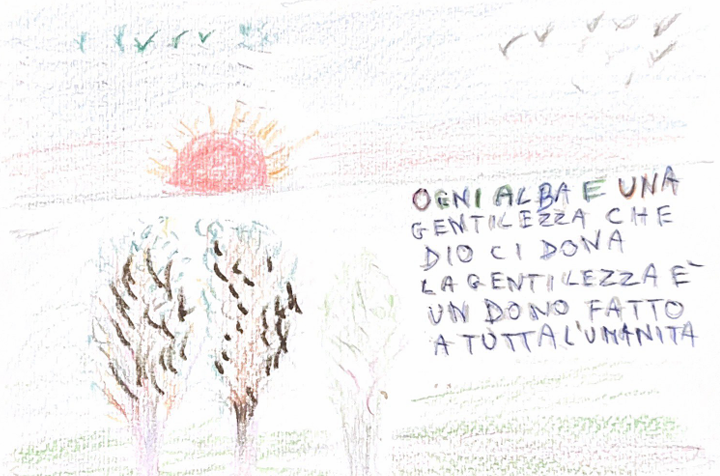 OGNI ALBA E UNA
GENTILEZZA CHE
DIO CI DONA
LA GENTILEZZA E'
UN DONO FATTO
A TUTTA L'UMANITA